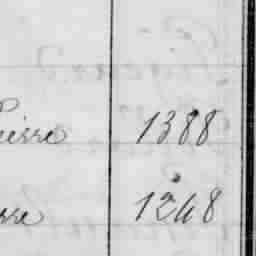 Pierre 1388
rre 1248